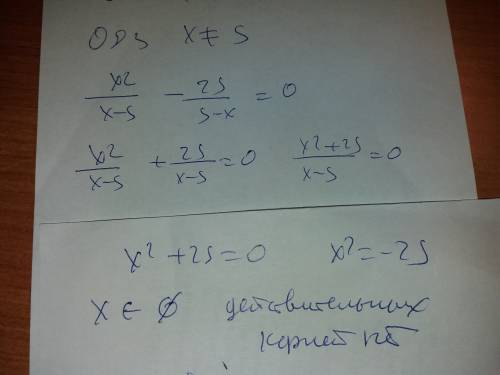 ОДЗ x ≠ 5
x²/(x-5) - 25/(5-x) = 0
x²/(x-5) + 25/(x-5) = 0 (x²+25)/(x-5) = 0
x² + 25 = 0 x² = -25
x ∈ ∅ действительных
корней нет